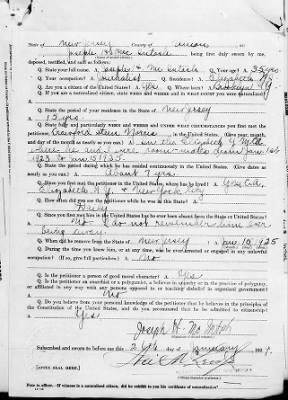 State of New Jersey County of Union ss:
Joseph H. Mc Intosh being first duly sworn by me,
deposed, testified and said as follows:
Q. State your full name. A. Joseph H. Mc Intosh Q. Your age? A. 35 yrs
Q. Your occupation? A. Machinist Q. Residence? A. Elizabeth N.J.
Q. Are you a citizen of the United States? A. Yes Q. Where born? A. Brooklyn N.Y.
Q. If you are a naturalized citizen, state when and in what court you were naturalized.
A.
Q. State the period of your residence in the State of New Jersey
A. 15 yrs.
Q. State fully and particularly when and where and under what circumstances you first met the
petitioner Crawford Stew Norris in the United States. (Give year, month,
and day of the month as nearly as you can.) A. In the Elizabeth Y M C A
where he and I were room-mates from June 1st
1923 to June 15 1925.
Q. State the period during which he has resided continuously in the United States. (Give dates as
nearly as you can.) A. About 7 yrs.
Q. Since you first met the petitioner in the United States, where has he lived? A. YMCA
Elizabeth N.J. & New York City
Q. How often did you see the petitioner while he was in this State? A.
Daily
Q. Since you first met him in the United States has he ever been absent from the State or United States?
A. No - I do not remember him ever
being away.
Q. When did he remove from the State of New Jersey? A. June 15, 1925
Q. During the time you knew him, or at any time, was he ever arrested or engaged in any unlawful
occupation? (If so, give full particulars.) A. No
Q. Is the petitioner a person of good moral character? A. Yes
Q. Is the petitioner an anarchist or a polygamist, a believer in anarchy or in the practice of polygamy,
or affiliated in any way with any persons opposed to or teaching disbelief in organized government?
A. No
Q. Do you believe from your personal knowledge of the petitioner that he believes in the principles
of the Constitution of the United States, and do you recommend that he be admitted to citizenship?
A. Yes
Joseph H. Mc Intosh
Subscribed and sworn to before me this 24th day of January, 192